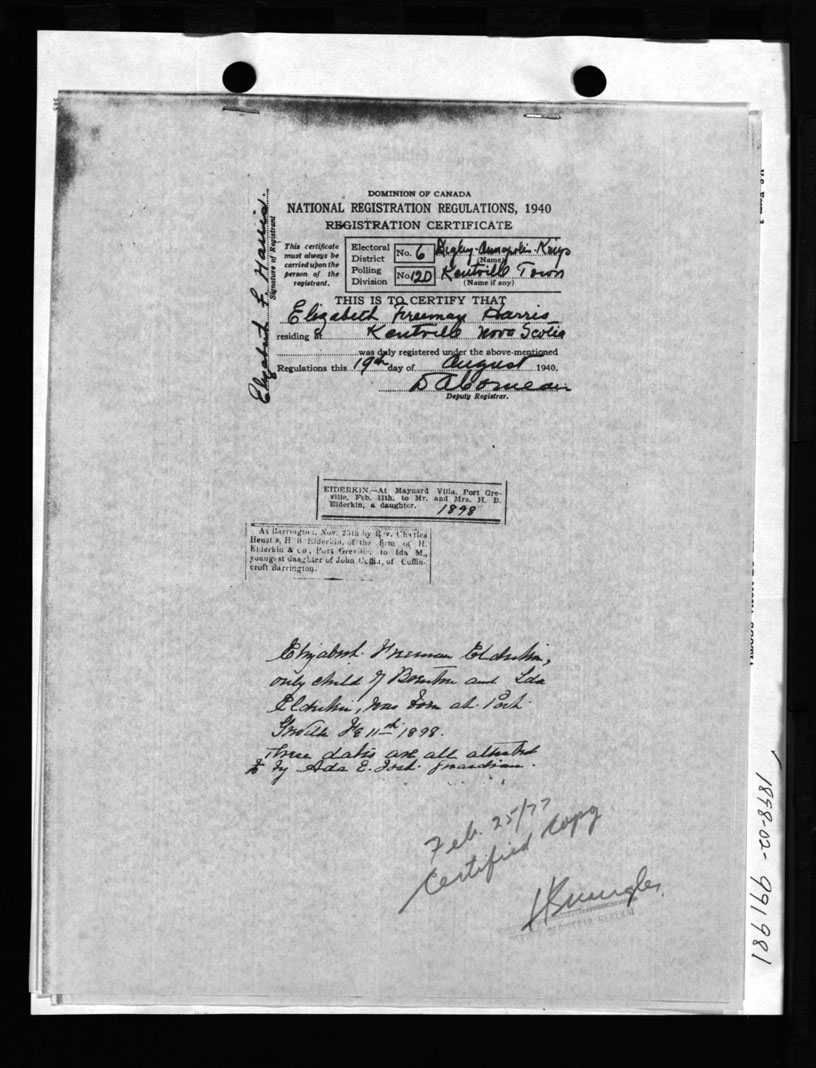 DOMINION OF CANADA
NATIONAL REGISTRATION REGULATIONS, 1940
REGISTRATION CERTIFICATE
This certificate must always be carried upon the person of the registrant.
Electoral District No. 6 Digby-Annapolis-Kings
(Name)
Polling Division No. 120 Kentville Town
(Name if any)
THIS IS TO CERTIFY THAT
Elizabeth Freeman Harris
residing at Kentville Nova Scotia
was duly registered under the above-mentioned
Regulations this 19th day of August 1940.
D A Comeau
Deputy Registrar.
Elizabeth F. Harris.
Signature of Registrant
EIDERKIN.—At Maynard Villa, Port Gre-
ville, Feb. 11th, to Mr. and Mrs. H. B.
Elderkin, a daughter. 1898
At Barrington, Nov. 25th by Rev. Charles
H. B Elderkin, of the firm of H.
Elderkin & Co., Port Greville, to Ida M.,
youngest daughter of John Coffin, of Coffin-
croft Barrington.
Elizabeth Freeman Elderkin,
only child of and Ida
Elderkin, was born at Port
Greville Fe 11th 1898.
These dates are all attested
to by Ada E. guardian.
Feb. 25/77
Certified Copy
REGISTRAR GENERAL
1898-02-991981